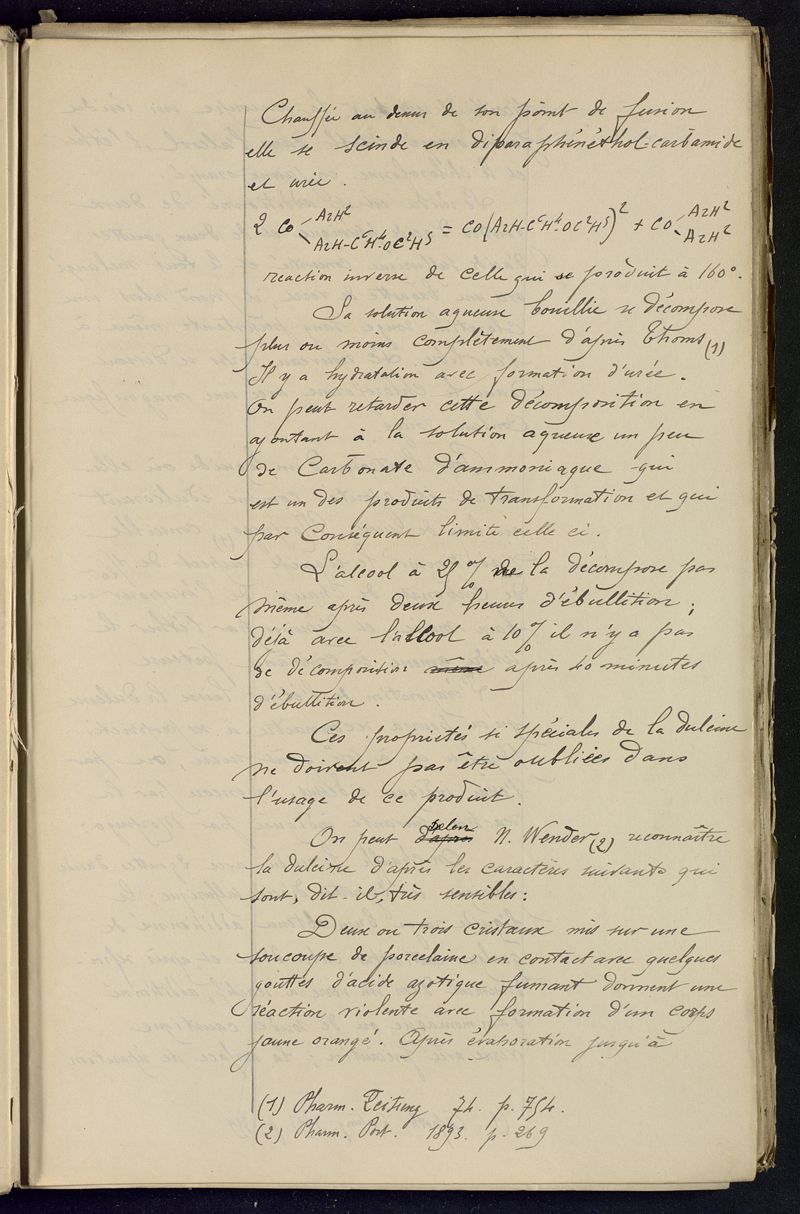 Chauffée au dessus de son point de fusion
elle se scinde en diparaphénéthol-carbamide
et urée.
2 CO AzH² AzH-C⁶H⁴-OC²H⁵ = CO(AzH-C⁶H⁴-OC²H⁵)² + CO AzH² AzH²
reaction inverse de celle qui se produit à 160°.
Sa solution aqueuse bouillie se décompose
plus ou moins complètement d'après Thoms (1)
Il y a hydratation avec formation d'urée.
On peut retarder cette décomposition en
ajoutant à la solution aqueuse un peu
de Carbonate d'ammoniaque qui
est un des produits de transformation et qui
par Conséquent limite celle ci.
L'alcool à 25 % ne la décompose pas
même après deux heures d'ébullition;
déjà avec l'alcool à 10 % il n'y a pas
de décomposition même après 40 minutes
d'ébullition.
Ces propriétés si spéciales de la dulcine
ne doivent pas être oubliées dans
l'usage de ce produit.
On peut d'après selon N. Wender (2) reconnaître
la dulcine d'après les caractères suivants qui
sont, dit-il, très sensibles:
Deux ou trois cristaux mis sur une
soucoupe de porcelaine en contact avec quelques
gouttes d'acide azotique fumant donnent une
réaction violente avec formation d'un corps
jaune orangé. Après évaporation jusqu'à
(1) Pharm. Zeitung 74. p. 754.
(2) Pharm. Post. 1893. p. 269